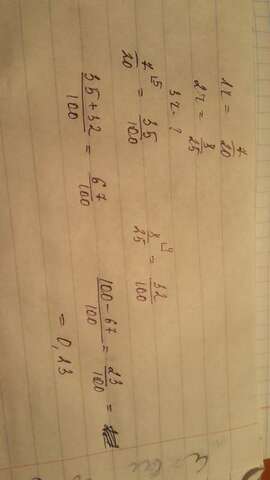 1ч = 7/20
2ч = 8/25
3ч - ?
7/20 ⁵ = 35/100 8/25 ⁴ = 32/100
35+32/100 = 67/100 100-67/100 = 23/100 =
= 0,23